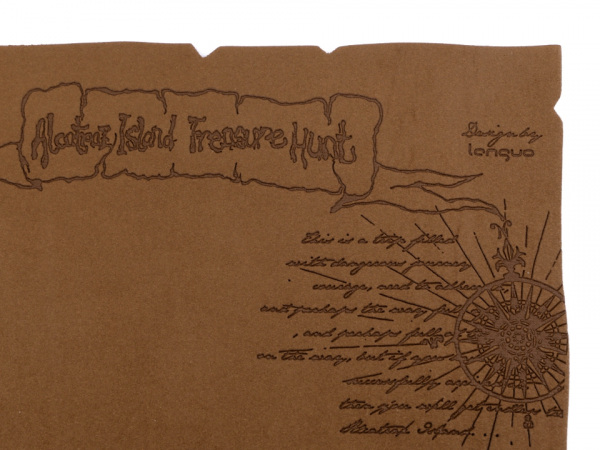 Alcatraz Island Treasure Hunt
Design by
longuo
This is a trip filled
with dangerous journey
courage, need to
and perhaps the way
, and perhaps full
on the way, but if
successfully
then you will
Alcatraz Island....